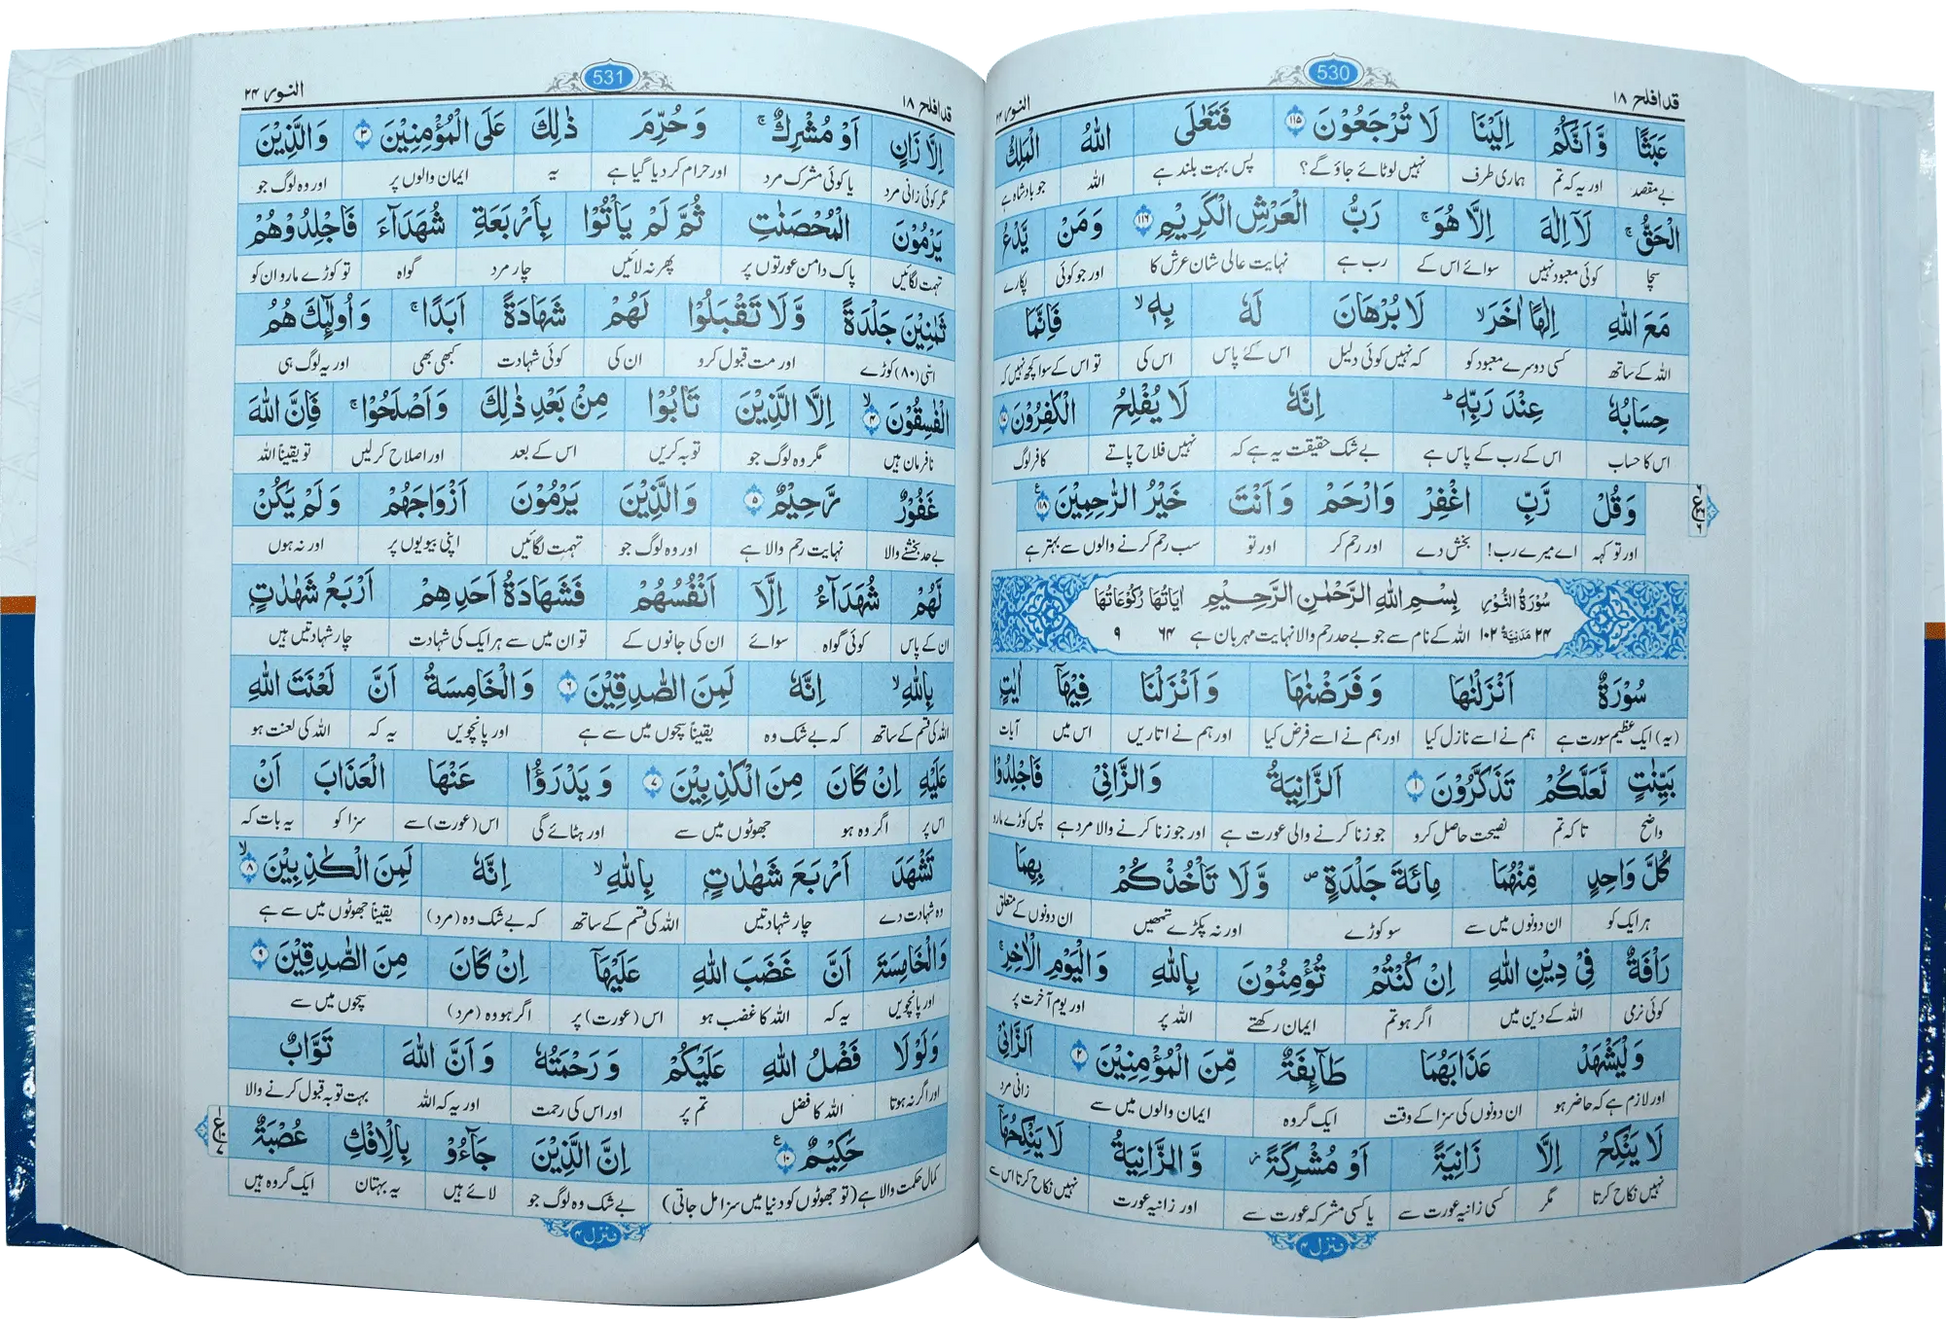 قد افلح ١٨
530
النور ٢٤
عَبَثًا وَّاَنَّكُمْ اِلَيْنَا لَا تُرْجَعُوْنَ ١١٥ فَتَعٰلَى اللّٰهُ الْمَلِكُ
بے مقصد اور یہ کہ تم ہماری طرف نہیں لوٹائے جاؤ گے؟ پس بہت بلند ہے اللہ جو بادشاہ ہے
الْحَقُّ ۚ لَاۤ اِلٰهَ اِلَّا هُوَ ۚ رَبُّ الْعَرْشِ الْكَرِيْمِ ١١٦ وَمَنْ يَّدْعُ
سچا کوئی معبود نہیں سوائے اس کے رب ہے نہایت عالی شان عرش کا اور جو کوئی پکارے
مَعَ اللّٰهِ اِلٰهًا اٰخَرَ ۙ لَا بُرْهَانَ لَهٗ بِهٖ ۙ فَاِنَّمَا
اللہ کے ساتھ کسی دوسرے معبود کو کہ نہیں کوئی دلیل اس کے پاس اس کی تو اس کے سوا کچھ نہیں کہ
حِسَابُهٗ عِنْدَ رَبِّهٖ ؕ اِنَّهٗ لَا يُفْلِحُ الْكٰفِرُوْنَ ١١٧
اس کا حساب اس کے رب کے پاس ہے بے شک حقیقت یہ ہے کہ نہیں فلاح پاتے کافر لوگ
وَقُلْ رَّبِّ اغْفِرْ وَارْحَمْ وَاَنْتَ خَيْرُ الرّٰحِمِيْنَ ١١٨
اور تو کہہ اے میرے رب! بخش دے اور رحم کر اور تو سب رحم کرنے والوں سے بہتر ہے
سُوْرَةُ النُّوْرِ بِسْمِ اللّٰهِ الرَّحْمٰنِ الرَّحِيْمِ اٰيَاتُهَا رُكُوْعَاتُهَا
٢٤ مَدَنِيَّةٌ ١٠٢ اللہ کے نام سے جو بے حد رحم والا نہایت مہربان ہے ٦٤ ٩
سُوْرَةٌ اَنْزَلْنٰهَا وَفَرَضْنٰهَا وَاَنْزَلْنَا فِيْهَاۤ اٰيٰتٍۭ
(یہ) ایک عظیم سورت ہے ہم نے اسے نازل کیا اور ہم نے اسے فرض کیا اور ہم نے اتاریں اس میں آیات
بَيِّنٰتٍ لَّعَلَّكُمْ تَذَكَّرُوْنَ ١ اَلزَّانِيَةُ وَالزَّانِيْ فَاجْلِدُوْا
واضح تا کہ تم نصیحت حاصل کرو جو زنا کرنے والی عورت ہے اور جو زنا کرنے والا مرد ہے پس کوڑے مارو
كُلَّ وَاحِدٍ مِّنْهُمَا مِائَةَ جَلْدَةٍ ۪ وَّلَا تَاْخُذْكُمْ بِهِمَا
ہر ایک کو ان دونوں میں سے سو کوڑے اور نہ پکڑے تمھیں ان دونوں کے متعلق
رَاْفَةٌ فِيْ دِيْنِ اللّٰهِ اِنْ كُنْتُمْ تُؤْمِنُوْنَ بِاللّٰهِ وَالْيَوْمِ الْاٰخِرِ ۚ
کوئی نرمی اللہ کے دین میں اگر ہو تم ایمان رکھتے اللہ پر اور یوم آخرت پر
وَلْيَشْهَدْ عَذَابَهُمَا طَآئِفَةٌ مِّنَ الْمُؤْمِنِيْنَ ٢ اَلزَّانِيْ
اور لازم ہے کہ حاضر ہو ان دونوں کی سزا کے وقت ایک گروہ ایمان والوں میں سے زانی مرد
لَا يَنْكِحُ اِلَّا زَانِيَةً اَوْ مُشْرِكَةً ۫ وَّالزَّانِيَةُ لَا يَنْكِحُهَاۤ
نہیں نکاح کرتا مگر کسی زانیہ عورت سے یا کسی مشرکہ عورت سے اور زانیہ عورت نہیں نکاح کرتا اس سے
منزل ٤
قد افلح ١٨
531
النور ٢٤
اِلَّا زَانٍ اَوْ مُشْرِكٌ ۚ وَحُرِّمَ ذٰلِكَ عَلَى الْمُؤْمِنِيْنَ ٣ وَالَّذِيْنَ
مگر کوئی زانی مرد یا کوئی مشرک مرد اور حرام کر دیا گیا ہے یہ ایمان والوں پر اور وہ لوگ جو
يَرْمُوْنَ الْمُحْصَنٰتِ ثُمَّ لَمْ يَاْتُوْا بِاَرْبَعَةِ شُهَدَآءَ فَاجْلِدُوْهُمْ
تہمت لگائیں پاک دامن عورتوں پر پھر نہ لائیں چار مرد گواہ تو کوڑے مارو ان کو
ثَمٰنِيْنَ جَلْدَةً وَّلَا تَقْبَلُوْا لَهُمْ شَهَادَةً اَبَدًا ۚ وَاُولٰٓئِكَ هُمُ
اسّی (٨٠) کوڑے اور مت قبول کرو ان کی کوئی شہادت کبھی بھی اور یہ لوگ ہی
الْفٰسِقُوْنَ ٤ ۙ اِلَّا الَّذِيْنَ تَابُوْا مِنْۢ بَعْدِ ذٰلِكَ وَاَصْلَحُوْا ۚ فَاِنَّ اللّٰهَ
نافرمان ہیں مگر وہ لوگ جو توبہ کریں اس کے بعد اور اصلاح کر لیں تو یقیناً اللہ
غَفُوْرٌ رَّحِيْمٌ ٥ وَالَّذِيْنَ يَرْمُوْنَ اَزْوَاجَهُمْ وَلَمْ يَكُنْ
بے حد بخشنے والا نہایت رحم والا ہے اور وہ لوگ جو تہمت لگائیں اپنی بیویوں پر اور نہ ہوں
لَّهُمْ شُهَدَآءُ اِلَّاۤ اَنْفُسُهُمْ فَشَهَادَةُ اَحَدِهِمْ اَرْبَعُ شَهٰدٰتٍۭ
ان کے پاس کوئی گواہ سوائے ان کی جانوں کے تو ان میں سے ہر ایک کی شہادت چار شہادتیں ہیں
بِاللّٰهِ ۙ اِنَّهٗ لَمِنَ الصّٰدِقِيْنَ ٦ وَالْخَامِسَةُ اَنَّ لَعْنَتَ اللّٰهِ
اللہ کی قسم کے ساتھ کہ بے شک وہ یقیناً سچوں میں سے ہے اور پانچویں یہ کہ اللہ کی لعنت ہو
عَلَيْهِ اِنْ كَانَ مِنَ الْكٰذِبِيْنَ ٧ وَيَدْرَؤُا عَنْهَا الْعَذَابَ اَنْ
اس پر اگر وہ ہو جھوٹوں میں سے اور ہٹائے گی اس (عورت) سے سزا کو یہ بات کہ
تَشْهَدَ اَرْبَعَ شَهٰدٰتٍۭ بِاللّٰهِ ۙ اِنَّهٗ لَمِنَ الْكٰذِبِيْنَ ٨ ۙ
وہ شہادت دے چار شہادتیں اللہ کی قسم کے ساتھ کہ بے شک وہ (مرد) یقیناً جھوٹوں میں سے ہے
وَالْخَامِسَةَ اَنَّ غَضَبَ اللّٰهِ عَلَيْهَاۤ اِنْ كَانَ مِنَ الصّٰدِقِيْنَ ٩
اور پانچویں یہ کہ اللہ کا غضب ہو اس (عورت) پر اگر ہو وہ (مرد) سچوں میں سے
وَلَوْلَا فَضْلُ اللّٰهِ عَلَيْكُمْ وَرَحْمَتُهٗ وَاَنَّ اللّٰهَ تَوَّابٌ
اور اگر نہ ہوتا اللہ کا فضل تم پر اور اس کی رحمت اور یہ کہ اللہ بہت توبہ قبول کرنے والا
حَكِيْمٌ ١٠ اِنَّ الَّذِيْنَ جَآءُوْ بِالْاِفْكِ عُصْبَةٌ
کمال حکمت والا ہے (تو جھوٹوں کو دنیا میں سزا مل جاتی) بے شک وہ لوگ جو لائے ہیں یہ بہتان ایک گروہ ہیں
منزل ٤